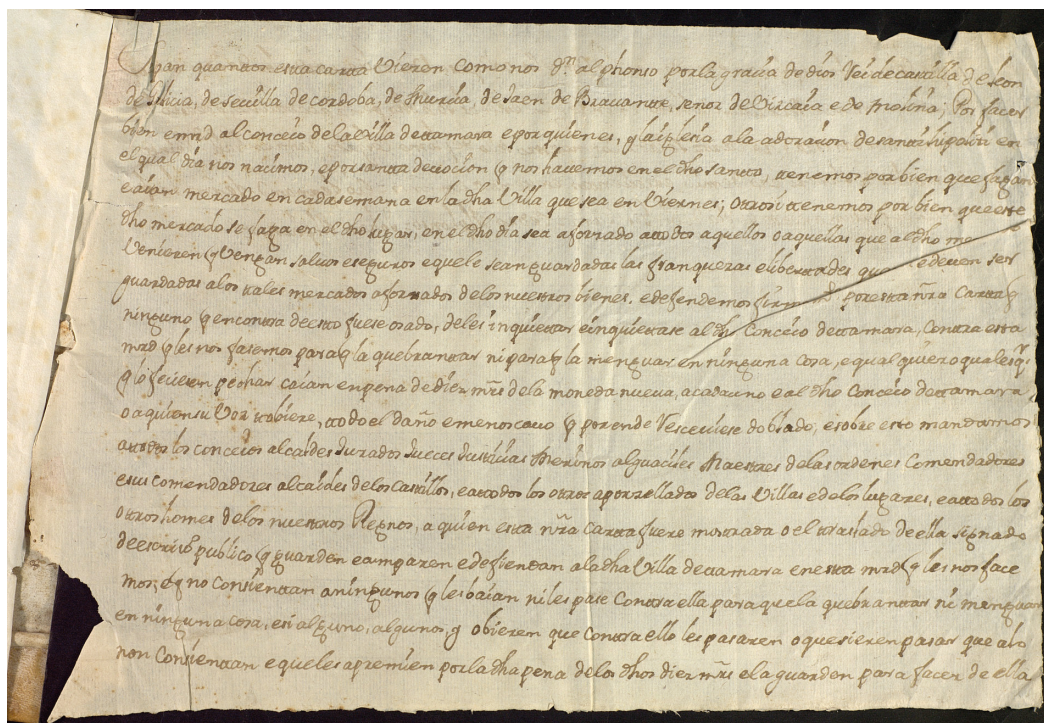 Sepan quanttos estta cartta Vieren como nos dn alphonso por la gracia de dios Rei de casttilla de leon
de Galicia, de sevilla de cordoba, de Murcia, de Jaen de Bravantte, señor de Vizcaia e de Molina; Por facer
bien e mrd al concejo de la Villa de ttamara e por quienes, q la iglesia a la adorazion de santt hipolitti en
el qual dia nos nacimos, e por santta devocion q nos havemos en el dho santto, ttenemos por bien que fagan
e aian mercado en cada semana en la dha Villa que sea en Viernes; Ottrosi ttenemos por bien que estte
dho mercado se faga en el dho lugar, en el dho dia sea aforrado a ttodos aquellos o aquellas que al dho me
Venieren q Vengan salvos e seguros e quele sean guardadas las franquezas e liberttades que le deven ser
guardadas a los ttales mercados aforrados de los nuesttros bienes, e defendemos por estta nra Cartta q
ninguno q en conttra de estto fuese osado, de les inquiettar e inquiettase al dho Concejo de ttamara, Conttra estta
mrd q les nos facemos para q la quebranttar ni para q la menguar en ninguna cosa, e qual quiero quales qr
q lo ficiesen pechar caian en pena de diez mrs de la moneda nueva, a cada uno e al dho Concejo de ttamara
o a quien su Voz ttobiere, ttodo el daño e menoscavo q por ende Resceviese doblado, e sobre estto mandamos
a ttodos los concejos alcaldes Jurados Jueces Justticias Merinos alguaciles Maesttres de las ordenes Comendadores
e sus comendadores alcaides de los Casttillos, e a ttodos los ottros aporttellados de las Villas e de los lugares, e a ttodos los
Ottros homes de los nuesttros Regnos, a quien estta nra Cartta fuere mosttrada o el ttraslado de ella signado
de escrivo publico q guarden e amparen e defiendan a la dha Villa de ttamara en estta mrd q les nos face
mos, e q no Consienttan a ningunos q les baian ni les pase Conttra ella para que la quebranttar ni menguar
en ninguna cosa, e si alguno, algunos, y obieren que Conttra ello les pasaren o quesieren pasar que a lo
non Consienttan e queles apremien por la dha pena de los dhos diez mrs e la guarden para facer de ella